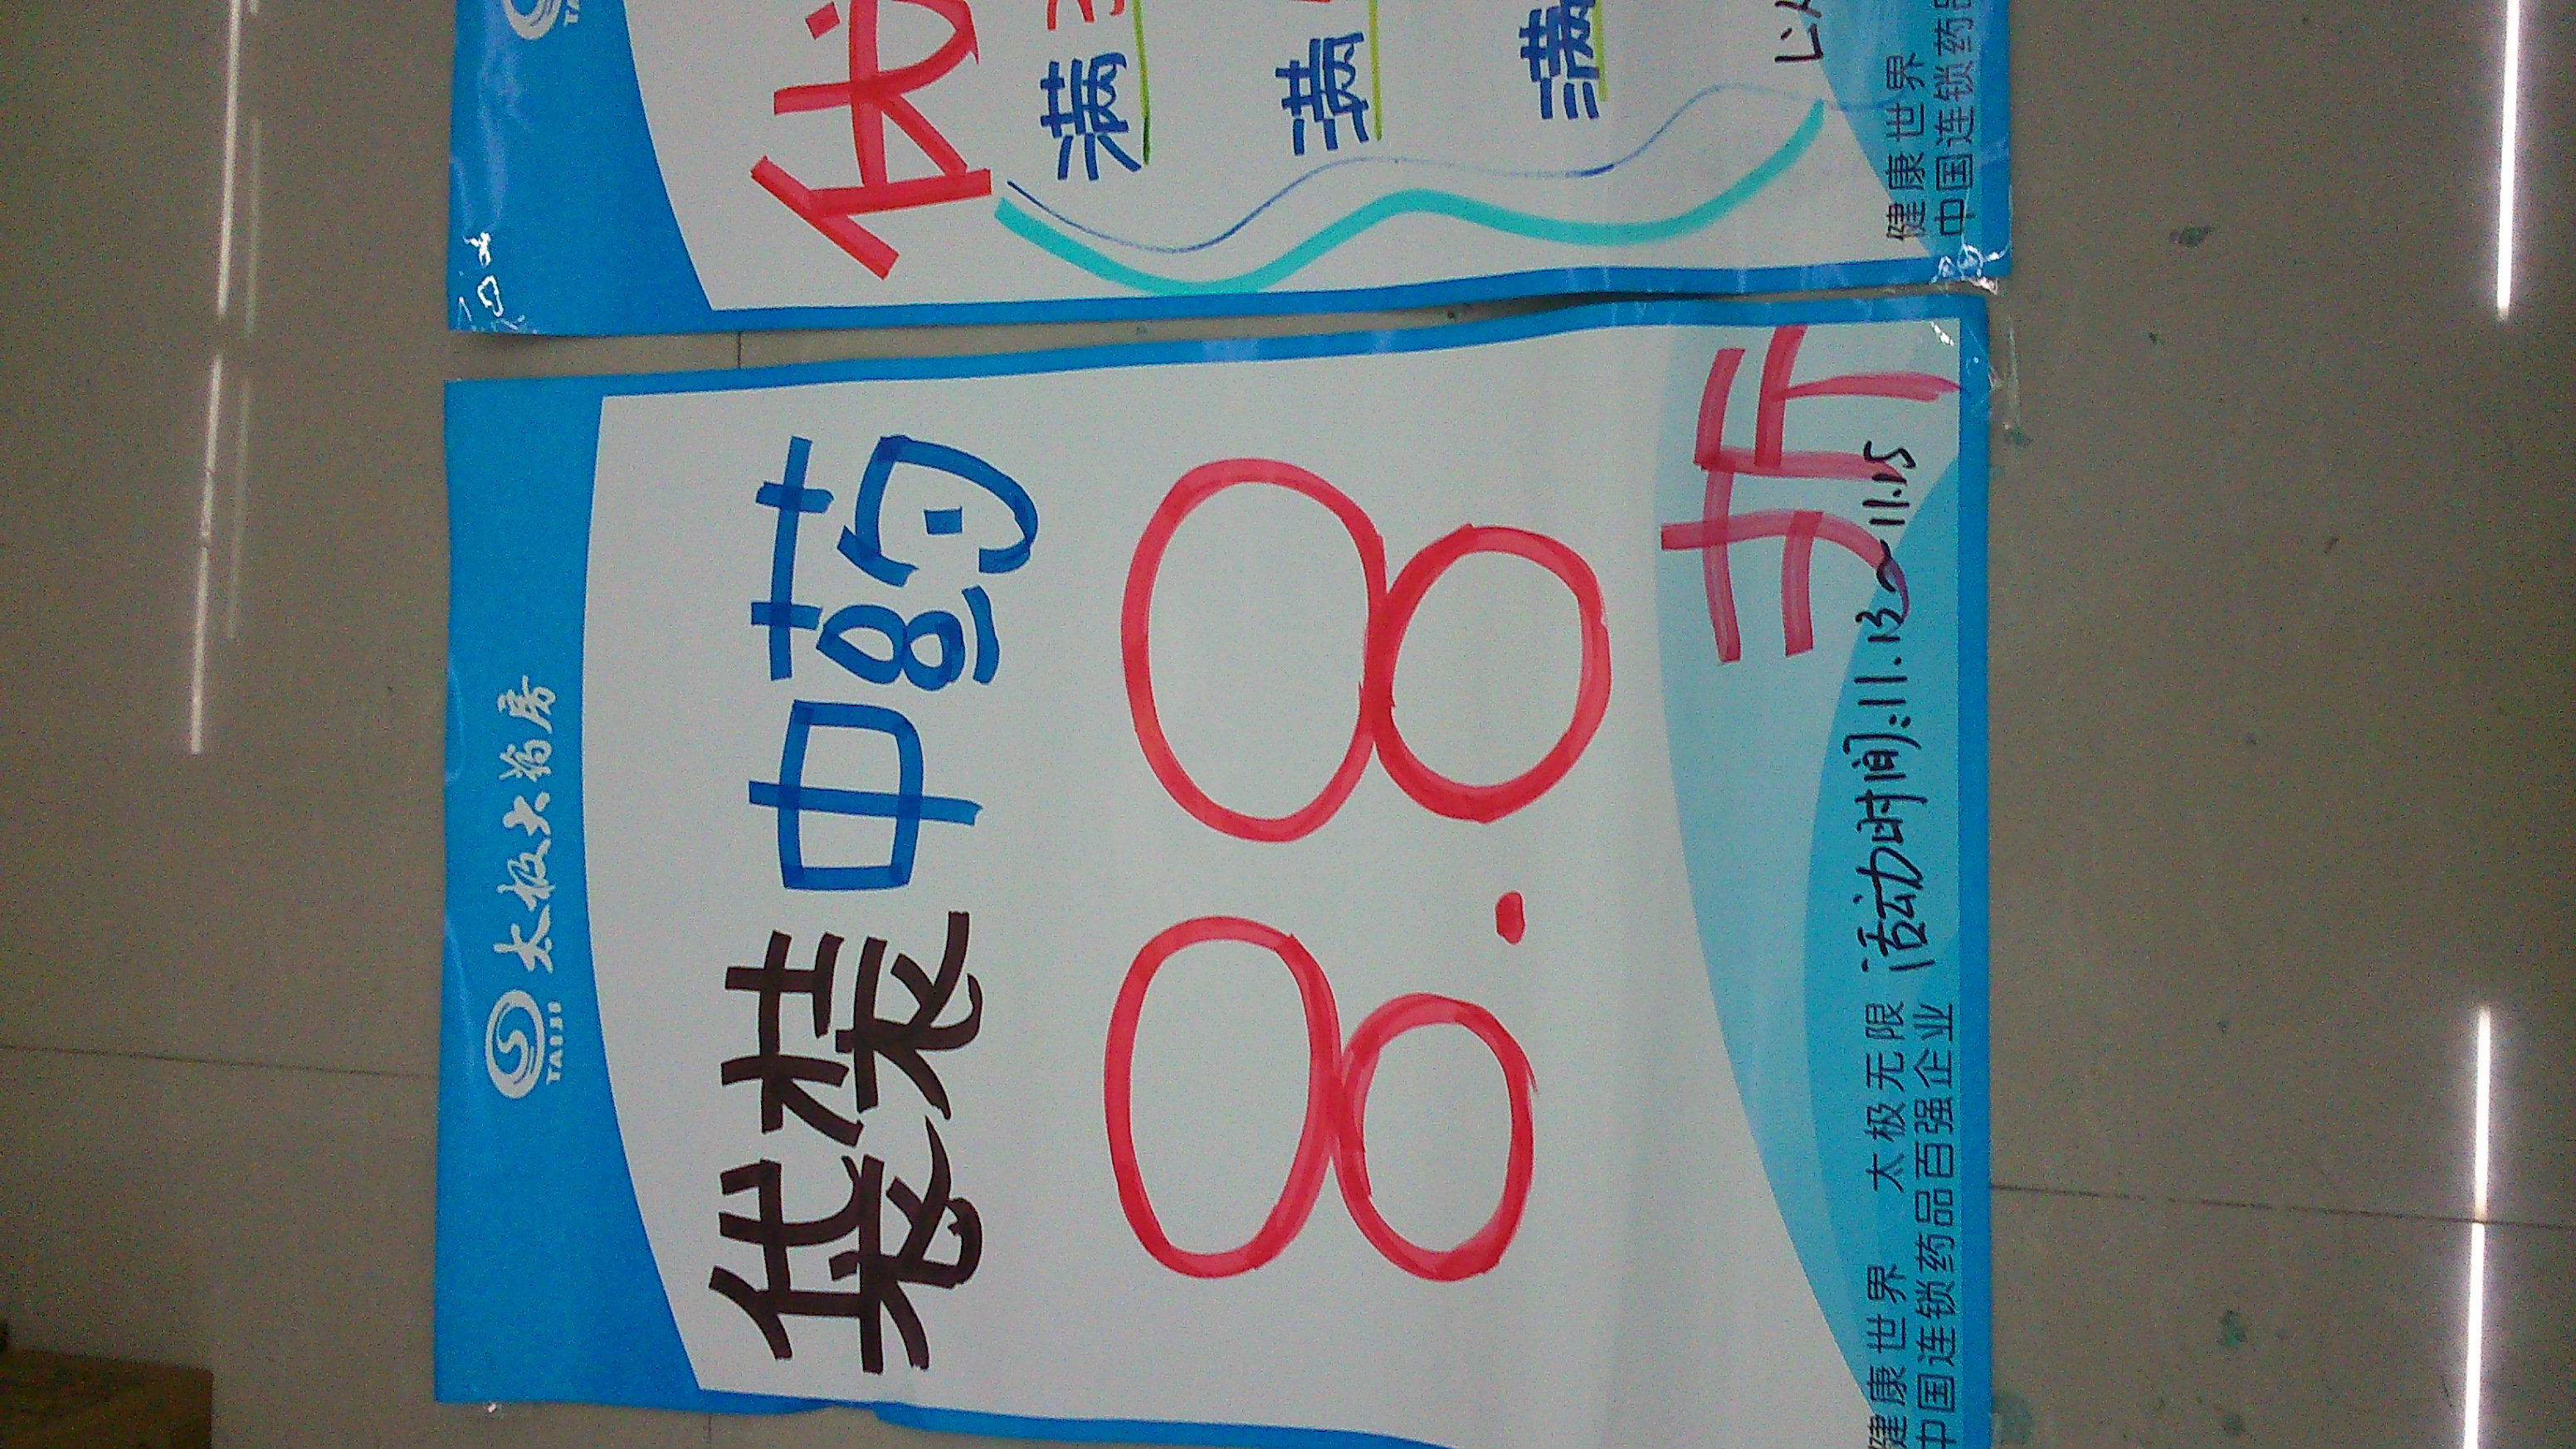 太极大药房
TAIJI
袋装中药
8.8折
活动时间:11.13~11.15
健康世界 太极无限
中国连锁药品百强企业
满
满
满
健康世界
中国连锁药品